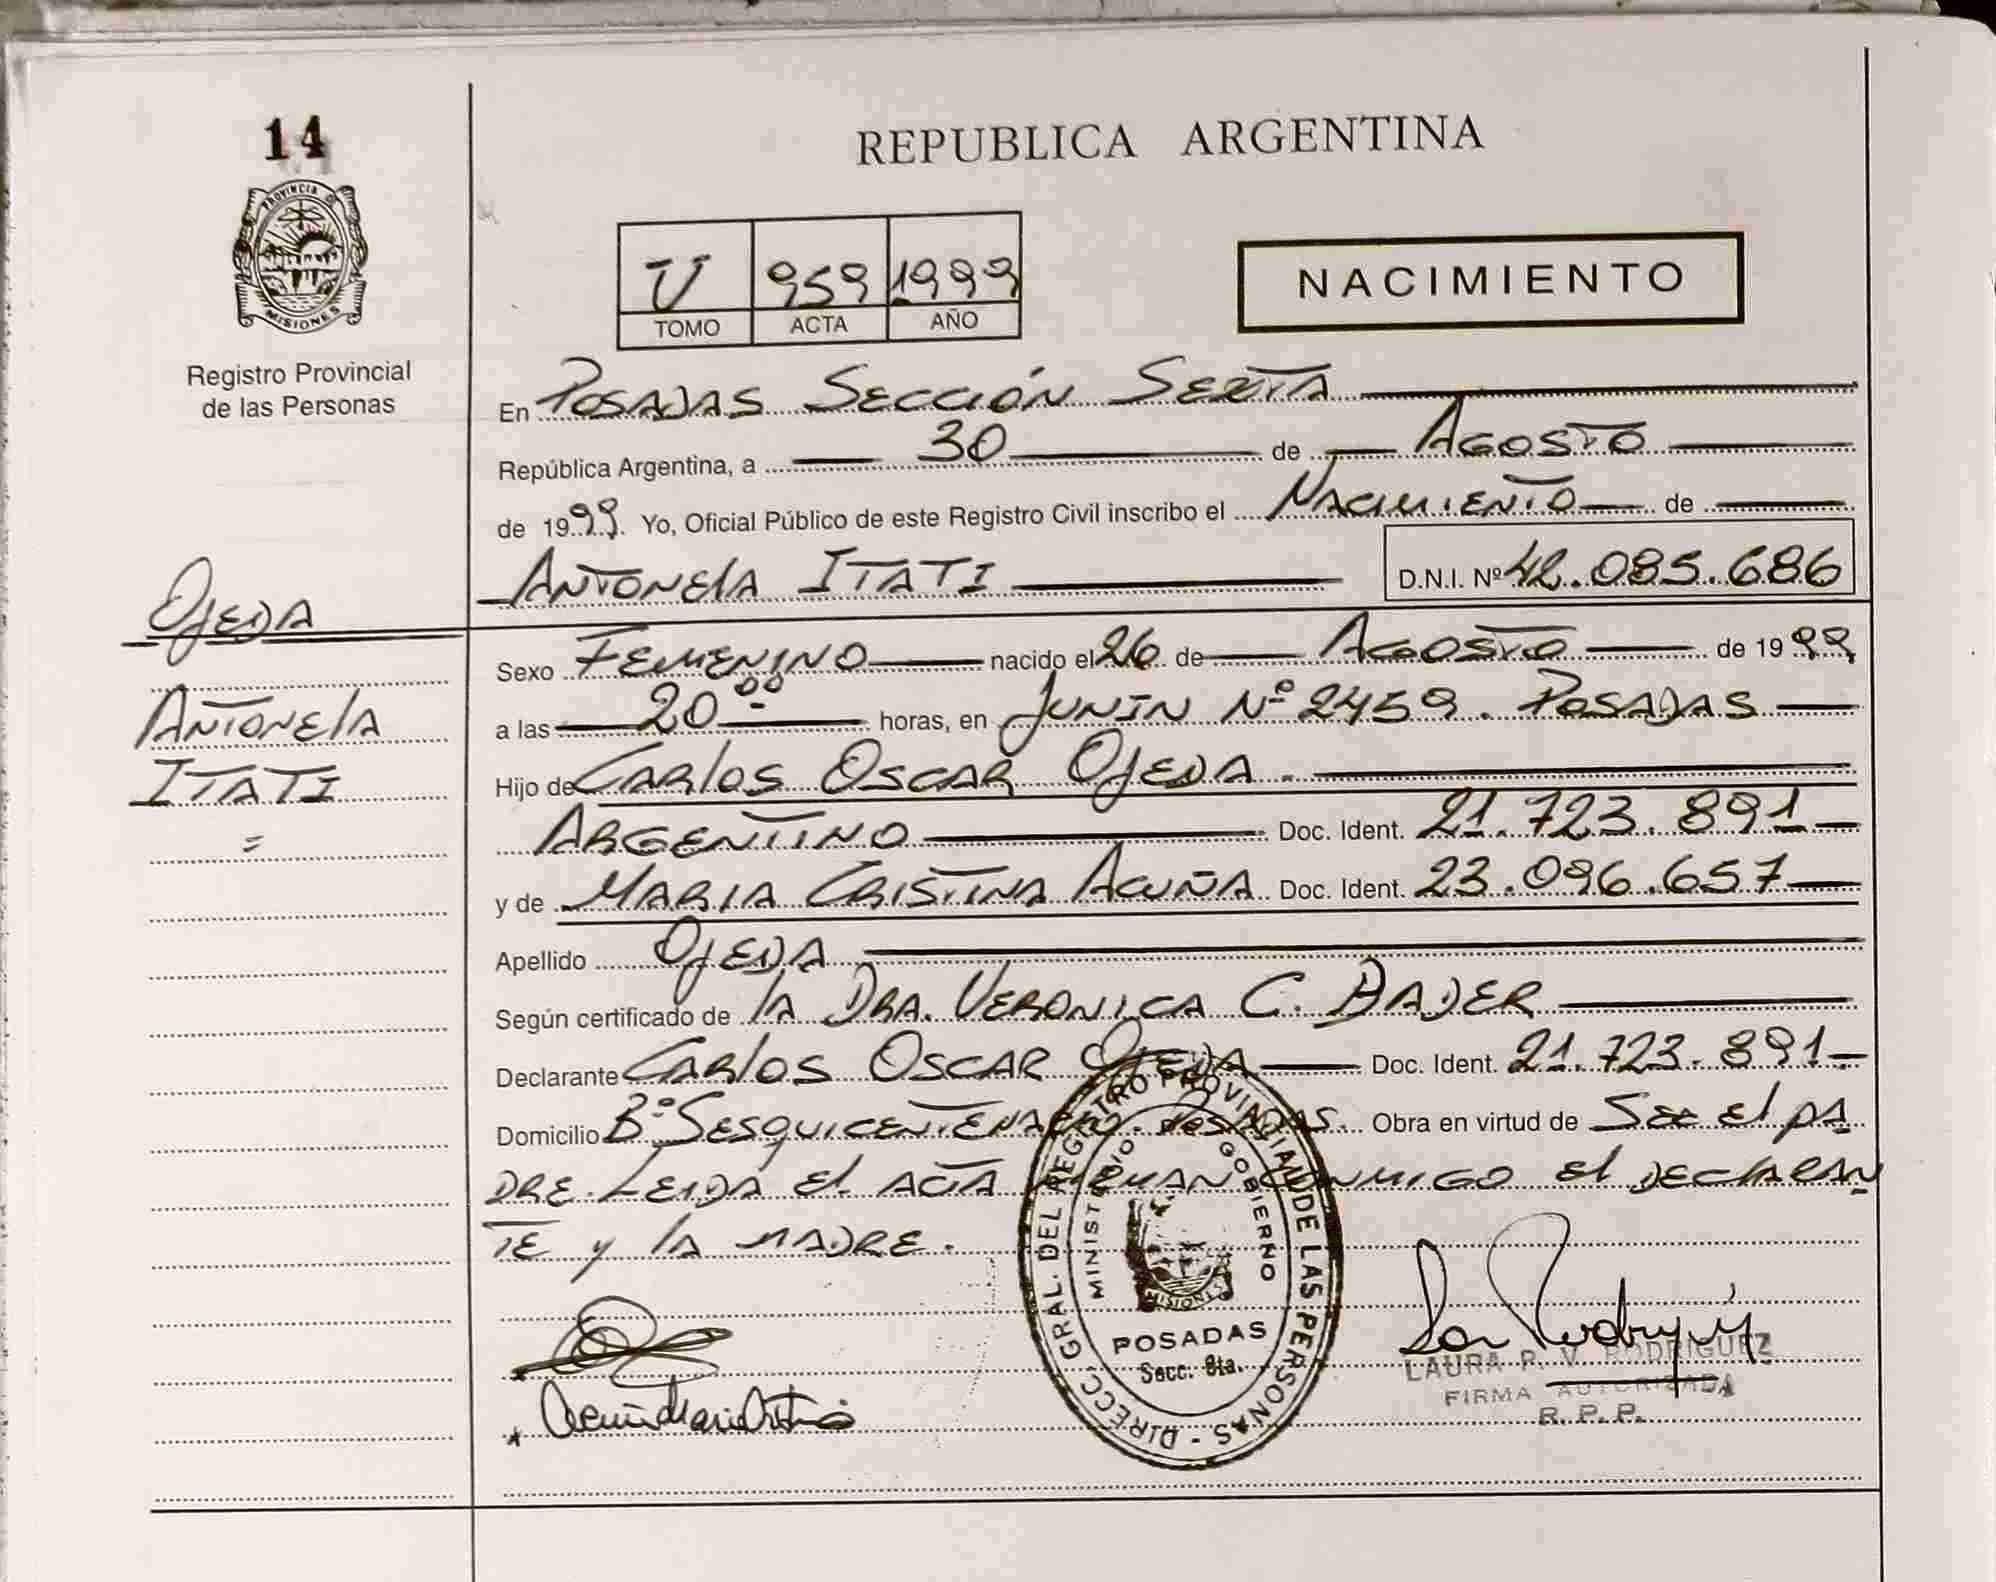 14
PROVINCIA D
MISIONES
Registro Provincial
de las Personas
REPUBLICA ARGENTINA
V 959 1999
TOMO ACTA AÑO
NACIMIENTO
En POSADAS SECCIÓN SEXTA
República Argentina, a 30 de AGOSTO
de 1999. Yo, Oficial Público de este Registro Civil inscribo el NACIMIENTO de
ANTONELA ITATI D.N.I. Nº 42.085.686
OJEDA
ANTONELA
ITATI
=
Sexo FEMENINO nacido el 26 de AGOSTO de 1999
a las 20 00 horas, en JUNIN Nº 2459. POSADAS
Hijo de CARLOS OSCAR OJEDA.
ARGENTINO Doc. Ident. 21.723.891
y de MARIA CRISTINA ACUÑA Doc. Ident. 23.096.657
Apellido OJEDA
Según certificado de LA DRA. VERONICA C. BADER
Declarante CARLOS OSCAR OJEDA Doc. Ident. 21.723.891
Domicilio Bº SESQUICENTENARIO. POSADAS. Obra en virtud de SER EL PA
DRE. LEIDA EL ACTA FIRMAN CONMIGO EL DECLARAN
TE Y LA MADRE.
DIRECC. GRAL. DEL REGISTRO PROVINCIAL DE LAS PERSONAS -
MINISTERIO GOBIERNO
MISIONES
POSADAS
Secc. 6ta.
Acuña Maria Cristina
LAURA R. V. RODRIGUEZ
FIRMA AUTORIZADA
R. P. P.